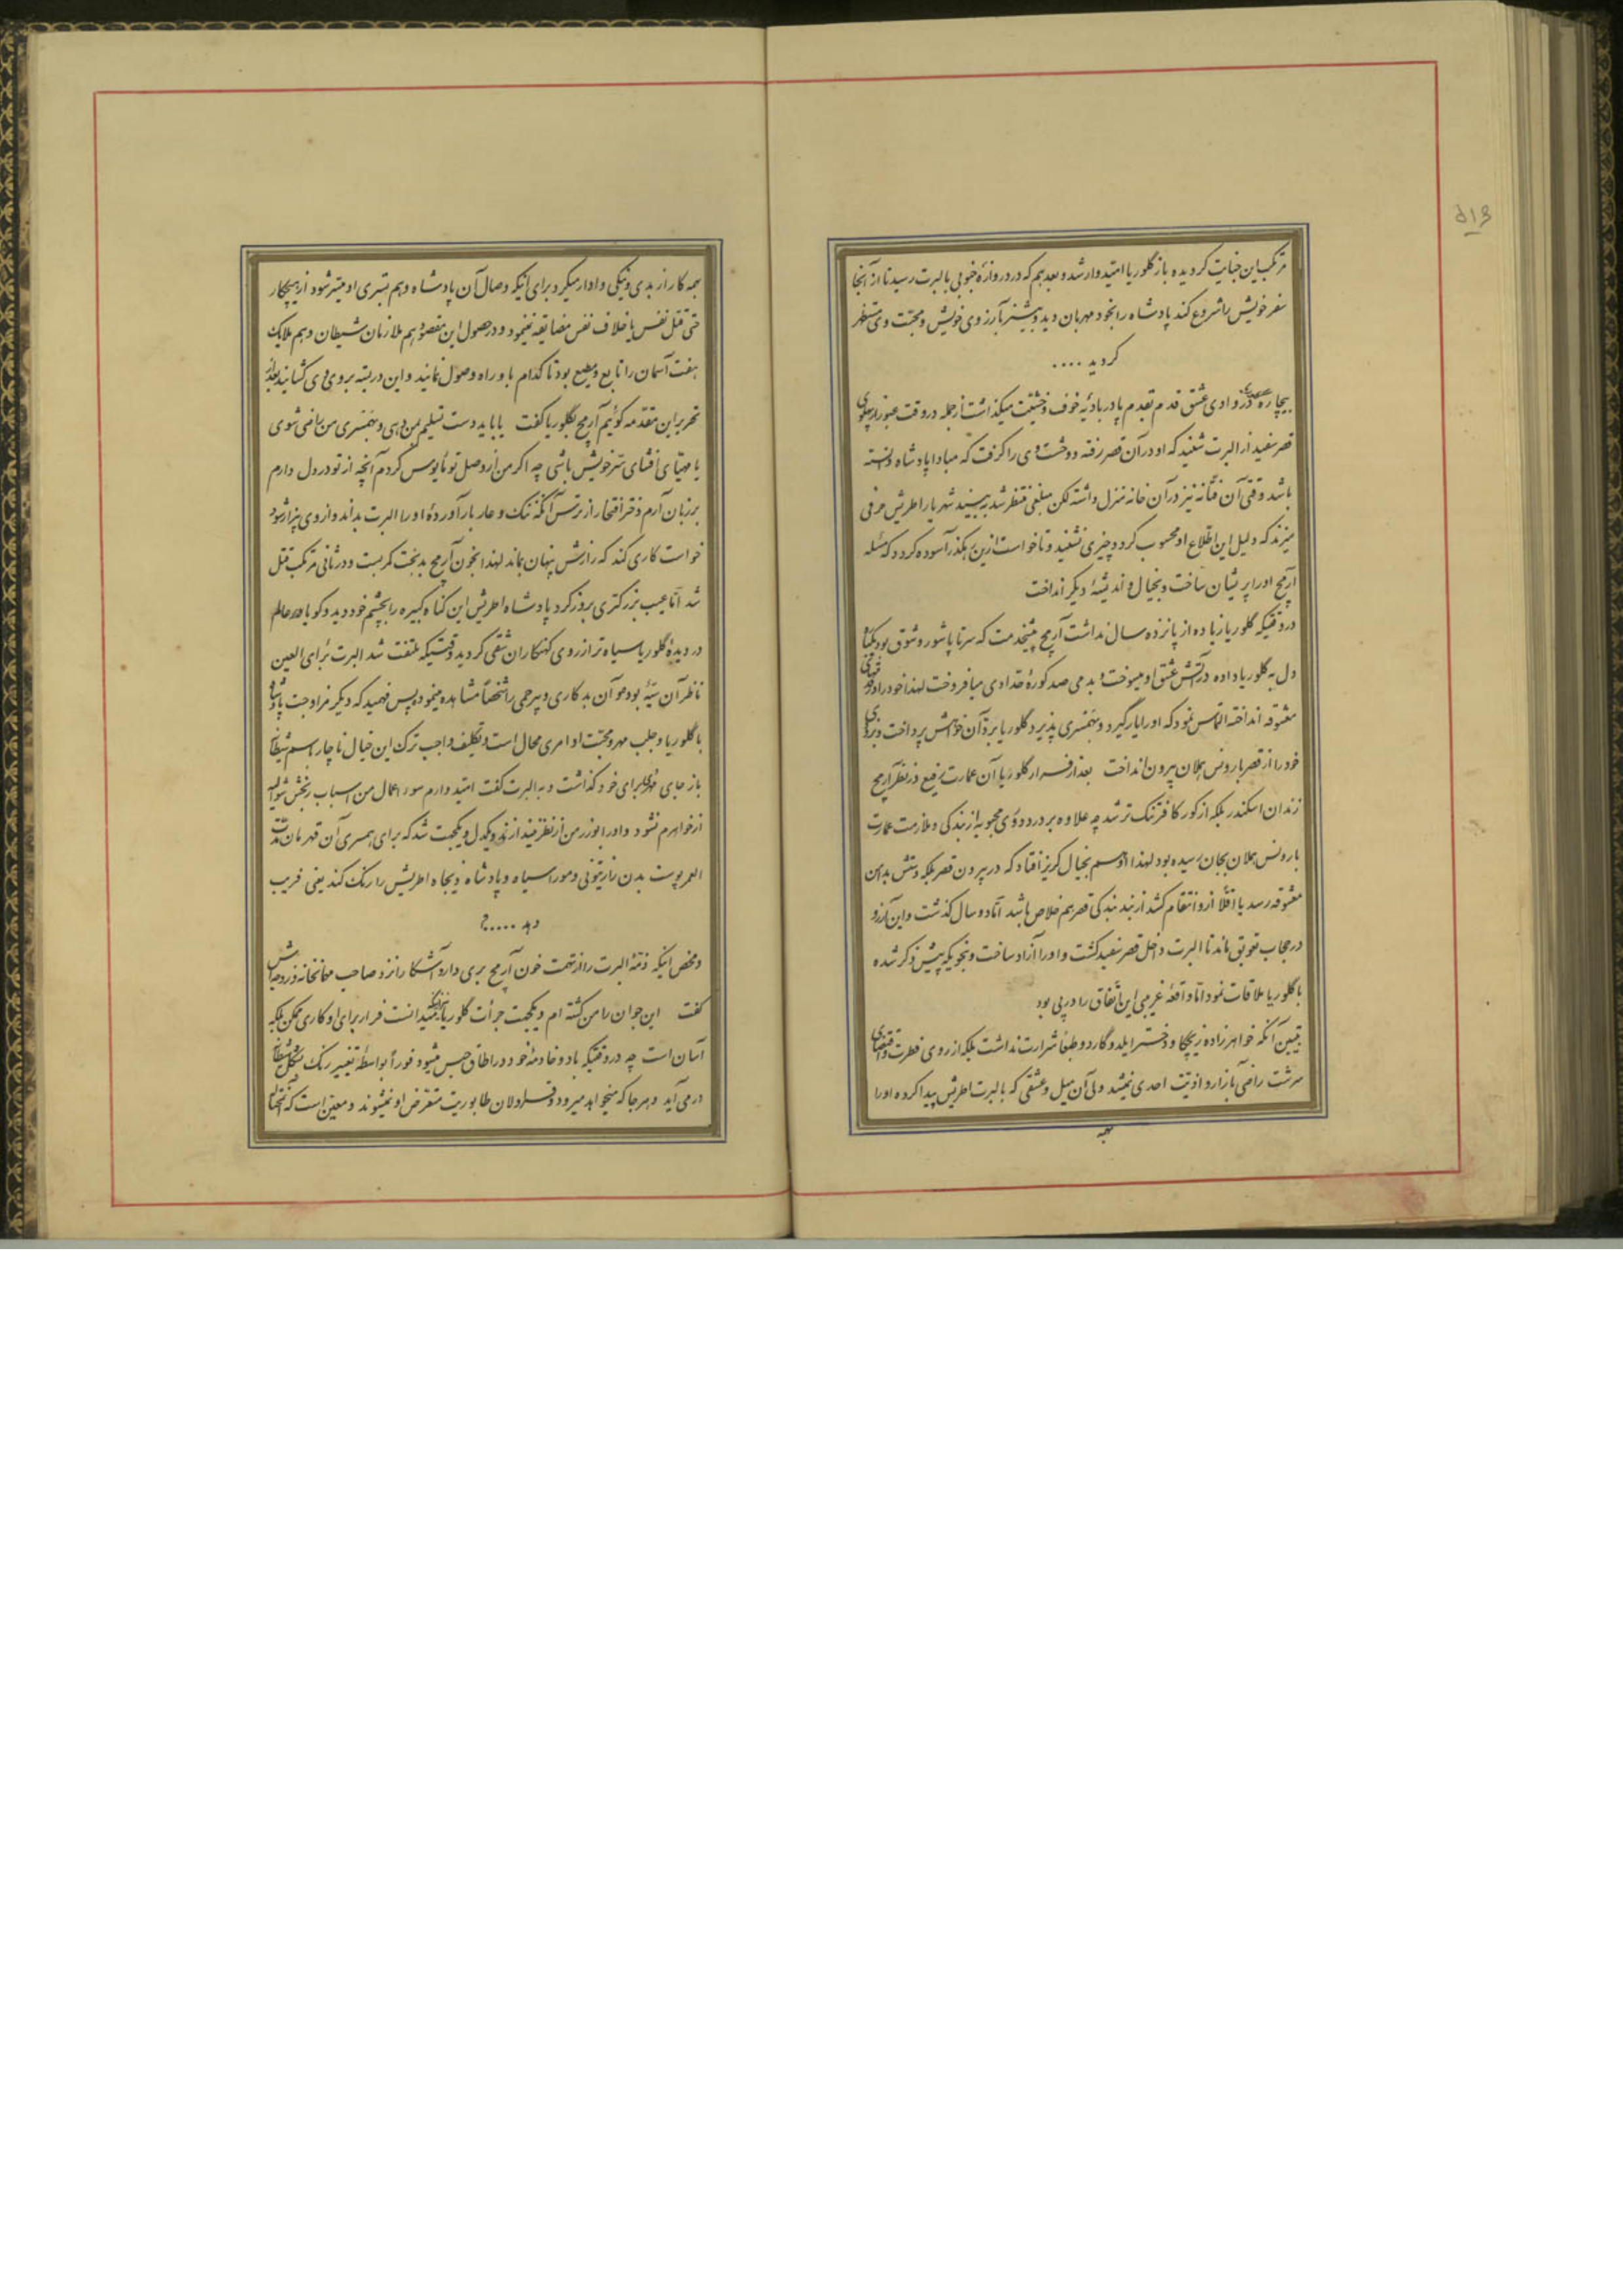 ۵۱۳
مرتکب این جنایت کردیده باز گلوریا امیدوار شد و بعد هم که در دروازهٔ جنوبی بالبرت رسید تا از آنجا
سفر خویش را شروع کند پادشاه را بخود مهربان دید و بیشتر بآرزوی خویش و محبت وی منتظر
کردید ....
بیچاره در وادی عشق قدم بقدم پا در بادیهٔ خوف و خشیت میکذاشت ازجمله در وقت عبور از پهلوی
قصر سفید از البرت شنید که او در آن قصر رفته و وحشت وی را کرفت که مبادا پادشاه دانسته
باشد وقتی آن فتانه نیز در آن خانه منزل داشته لکن مبلغی منتظر شد ببیند شهریار اطریش حرفی
میزند که دلیل این اطلاع او محسوب کردد چیزی نشنید و تا خواست ازین رهکذر آسوده کردد که مسئله
آریمج او را پریشان ساخت و بخیال و اندیشهٔ دیکر انداخت
در وقتیکه گلوریا زیاده از پانزده سال نداشت آریمج پیشخدمت که سرتا پا شور و شوق بود یکباره
دل به گلوریا داده در آتش عشق او میسوخت و بدمی صد کورهٔ حدادی میافروخت لهذا خود را در قدم
معشوقه انداخته التماس نمود که او را یار گیرد و بهمسری پذیرد گلوریا برد آن خواهش پرداخت و بزودی
خود را از قصر بارونس هملان بیرون انداخت بعد از فرار گلوریا آن عمارت رفیع در نظر آریمج
زندان اسکندر بلکه از کور کافر تنک تر شد چه علاوه بر درد دوری محبوبه از بندکی و ملازمت عمارت
بارونس هملان بجان رسیده بود لهذا او هم بخیال کریز افتاد که در بیرون قصر بلکه دستش بدامن
معشوقه رسد یا اقلا از او انتقام کشد از بند بندکی قصر هم خلاص باشد اما دو سال کذشت و این آرزو
در حجاب تعویق ماند تا البرت داخل قصر سفید کشت و او را آزاد ساخت و بنحویکه پیش ذکر شده
با گلوریا ملاقات نمود اما واقعهٔ غریبی این اتفاق را در پی بود
تبیین آنکه خواهرزاده زیچکا و دختر ایلدوگاردو طبعا شرارت نداشت بلکه از روی فطرت و اقتضای
سرشت راضی بآزار و اذیت احدی نمیشد ولی آن میل و عشقی که بالبرت اطریش پیدا کرده او را
همه
همه کار از بدی و نیکی وادار میکرد و برای آنیکه وصال آن پادشاه و هم بستری او میسر شود از هیچکار
حتی قتل نفس یا خلاف نفس مضایقه نمینمود و در حصول این مقصود هم ملازمان شیطان و هم ملایک
هفت آسمان را تابع و مطیع بود تا کدام باو راه وصول نمایند و این در بسته بروی وی کشایند بعد از
تحریر این مقدمه کوئیم آریمج بگلوریا کفت یا باید دست تسلیم بمن دهی و بهمسری من راضی شوی
یا مهیای افشای سر خویش باشی چه اکر من از وصل تو مأیوس کردم آنچه از تو در دل دارم
بر زبان آرم دختر افتخار از ترس آنکه ننک و عار بار آورده او را البرت بداند و از وی بیزار شود
خواست کاری کند که رازش پنهان بماند لهذا بخون آریمج بدبخت کمر بست و در ثانی مرتکب قتل
شد اما عیب بزرکتری بروز کرد پادشاه اطریش این کناه کبیره را بچشم خود دید و کویا همه عالم
در دیدهٔ گلوریا سیاه تر از روی کنهکاران شقی کردید وقتیکه ملتفت شد البرت برای العین
ناظر آن سیئه بوده و آن بد کاری و بیرحمی را شخصا مشاهده مینموده پس فهمید که دیکر مزاوجت پادشاه
با گلوریا و جلب مهر و محبت او امری محال است و تکلیف واجب ترک این خیال ناچار اسم شیطان
باز جای مهری برای خود کذاشت و به البرت کفت امیدوارم سوء اعمال من اسباب رنجش شوالیه
از خواهرم نشود و او را بوزر من از نظر نیندازند و یکدل و یکجهت شد که برای همسری آن قهرمان مدت
العمر پوست بدن را زیتونی و مو را سیاه و پادشاه ذیجاه اطریش را رنک کند یعنی فریب
دهد .....؟
و محض اینکه ذمهٔ البرت را از تهمت خون آریمج بری دارد آشکارا نزد صاحب مهمانخانه و زوجه اش
کفت این جوان را من کشته ام و یکجهت جرأت گلوریا اینکه میدانست فرار برای او کاری ممکن بلکه
آسان است چه در وقتیکه باد و خادمه خود در اطاق حبس میشود فورا بواسطهٔ تغییر رنک بشکل شیطان
در می آید و هر جا که میخواهد میرود و قراولان طابوریت متعرض او نمیشوند و معین است که آنجا